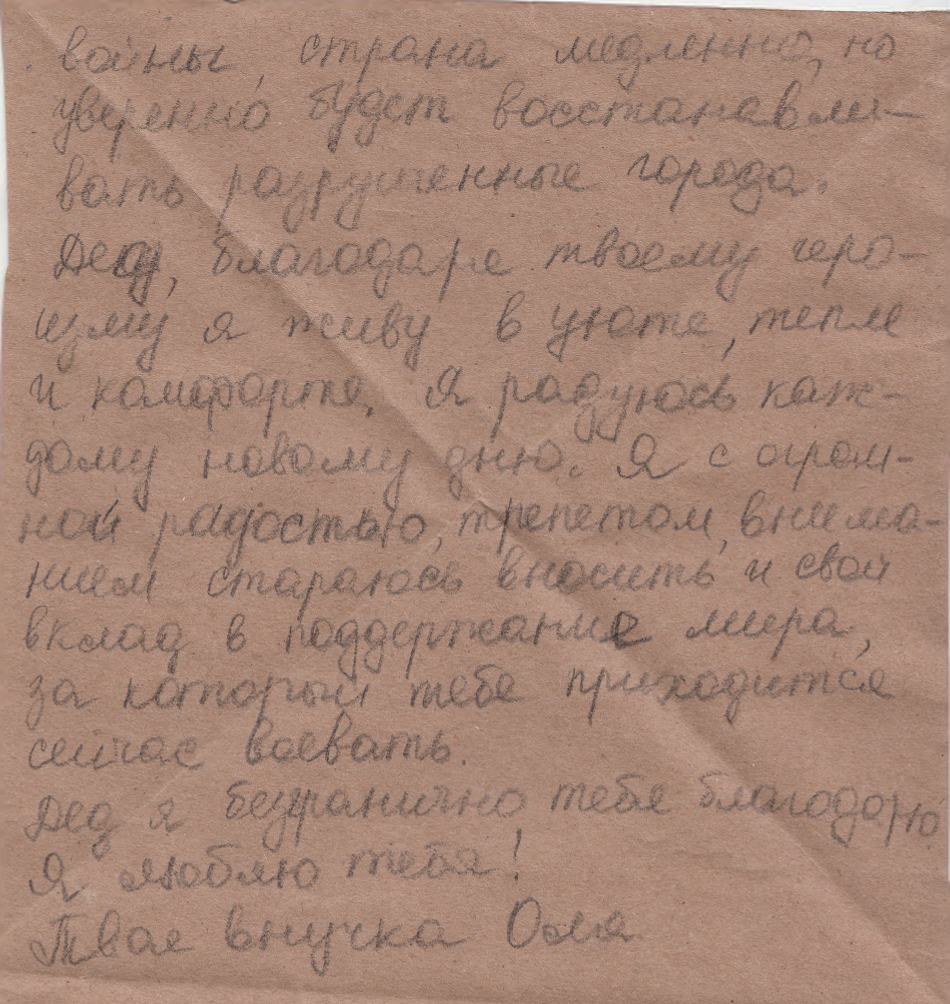 войны, страна медленно, но
уверенно будет восстанавли-
вать разрушенные города.
Дед, благодаря твоему геро-
изму я живу в уюте, тепле
и комфорте. Я радуюсь каж-
дому новому дню. Я с огром-
ной радостью, трепетом, внима-
нием стараюсь вносить и свой
вклад в поддержание мира,
за который тебе приходится
сейчас воевать.
Дед я безгранично тебе благодарю
Я люблю тебя!
Твоя внучка Оля